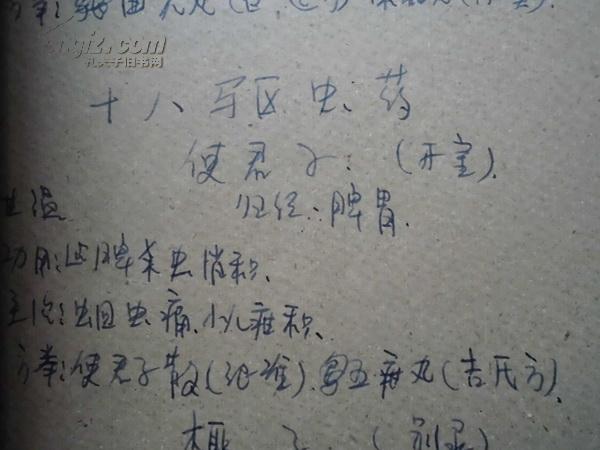 方举:
孔夫子旧书网
十八 驱虫药
使君子:(开宝).
甘温 归经:脾胃.
功用:健脾杀虫消积.
主治:蛔虫痛.小儿疳积、
方举:使君子散(准).五疳丸(吉氏方).
榧 子 (别录)